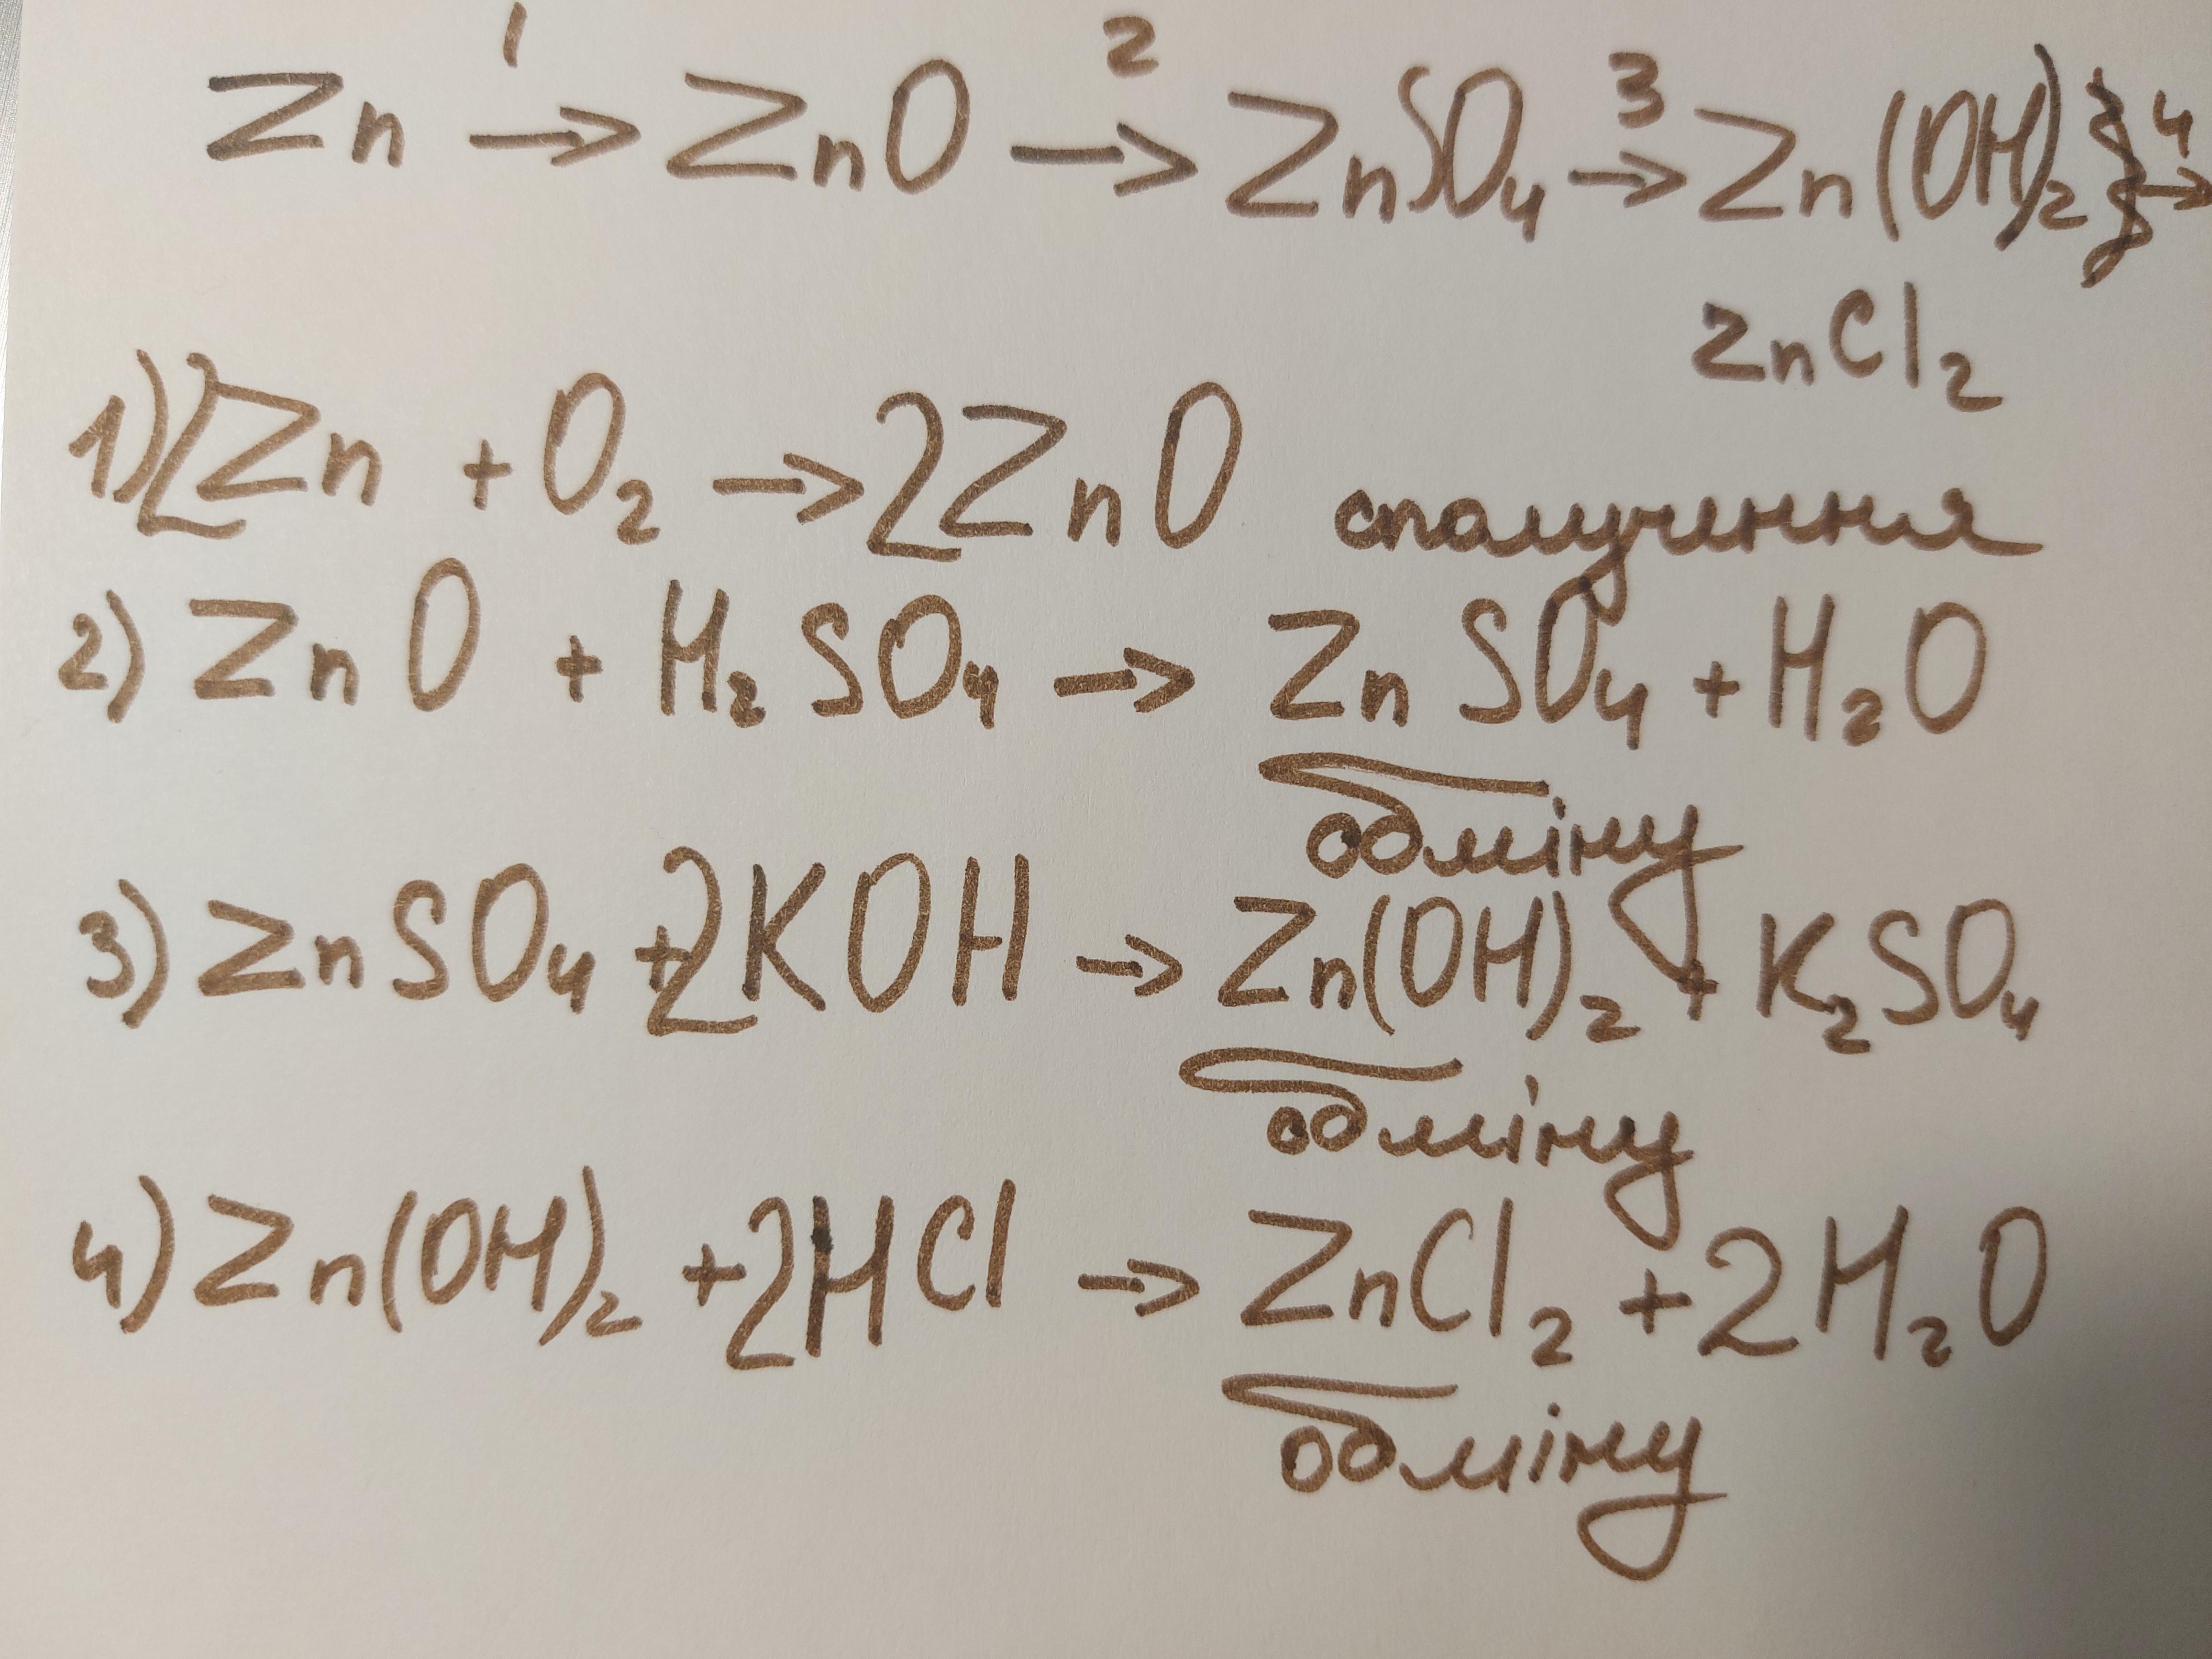 1 2 3 4
Zn → ZnO → ZnSO₄ → Zn(OH)₂ →
ZnCl₂
1) 2Zn + O₂ → 2ZnO сполучення
2) ZnO + H₂SO₄ → ZnSO₄ + H₂O
обміну
3) ZnSO₄ + 2KOH → Zn(OH)₂ + K₂SO₄
обміну
4) Zn(OH)₂ + 2HCl → ZnCl₂ + 2H₂O
обміну